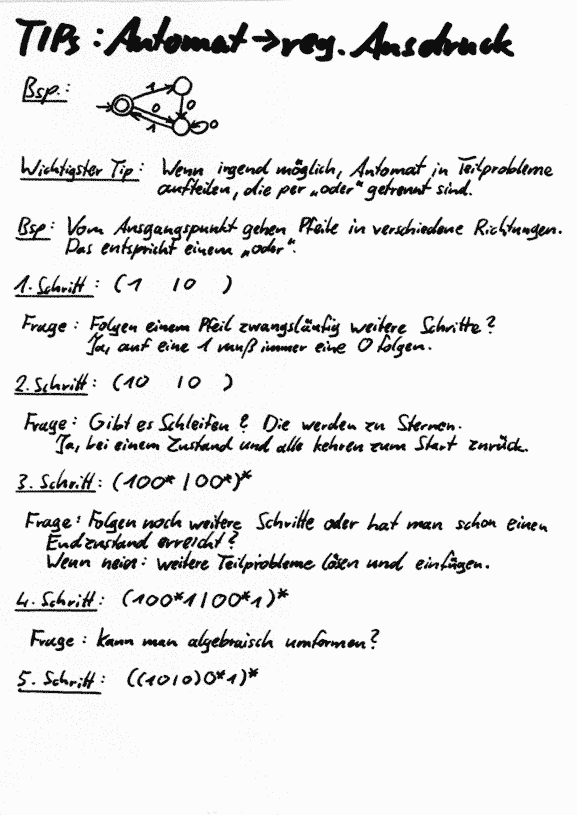 TIPs: Automat → reg. Ausdruck
Bsp.:
1
0
0
1
0
Wichtigster Tip: Wenn irgend möglich, Automat in Teilprobleme
aufteilen, die per „oder" getrennt sind.
Bsp: Vom Ausgangspunkt gehen Pfeile in verschiedene Richtungen.
Das entspricht einem „oder".
1. Schritt: (1 | 0 )
Frage: Folgen einem Pfeil zwangsläufig weitere Schritte?
Ja, auf eine 1 muß immer eine 0 folgen.
2. Schritt: (10 | 0 )
Frage: Gibt es Schleifen? Die werden zu Sternen.
Ja, bei einem Zustand und alle kehren zum Start zurück.
3. Schritt: (100* | 00*)*
Frage: Folgen noch weitere Schritte oder hat man schon einen
Endzustand erreicht?
Wenn nein: weitere Teilprobleme lösen und einfügen.
4. Schritt: (100*1 | 00*1)*
Frage: Kann man algebraisch umformen?
5. Schritt: ((10|0)0*1)*